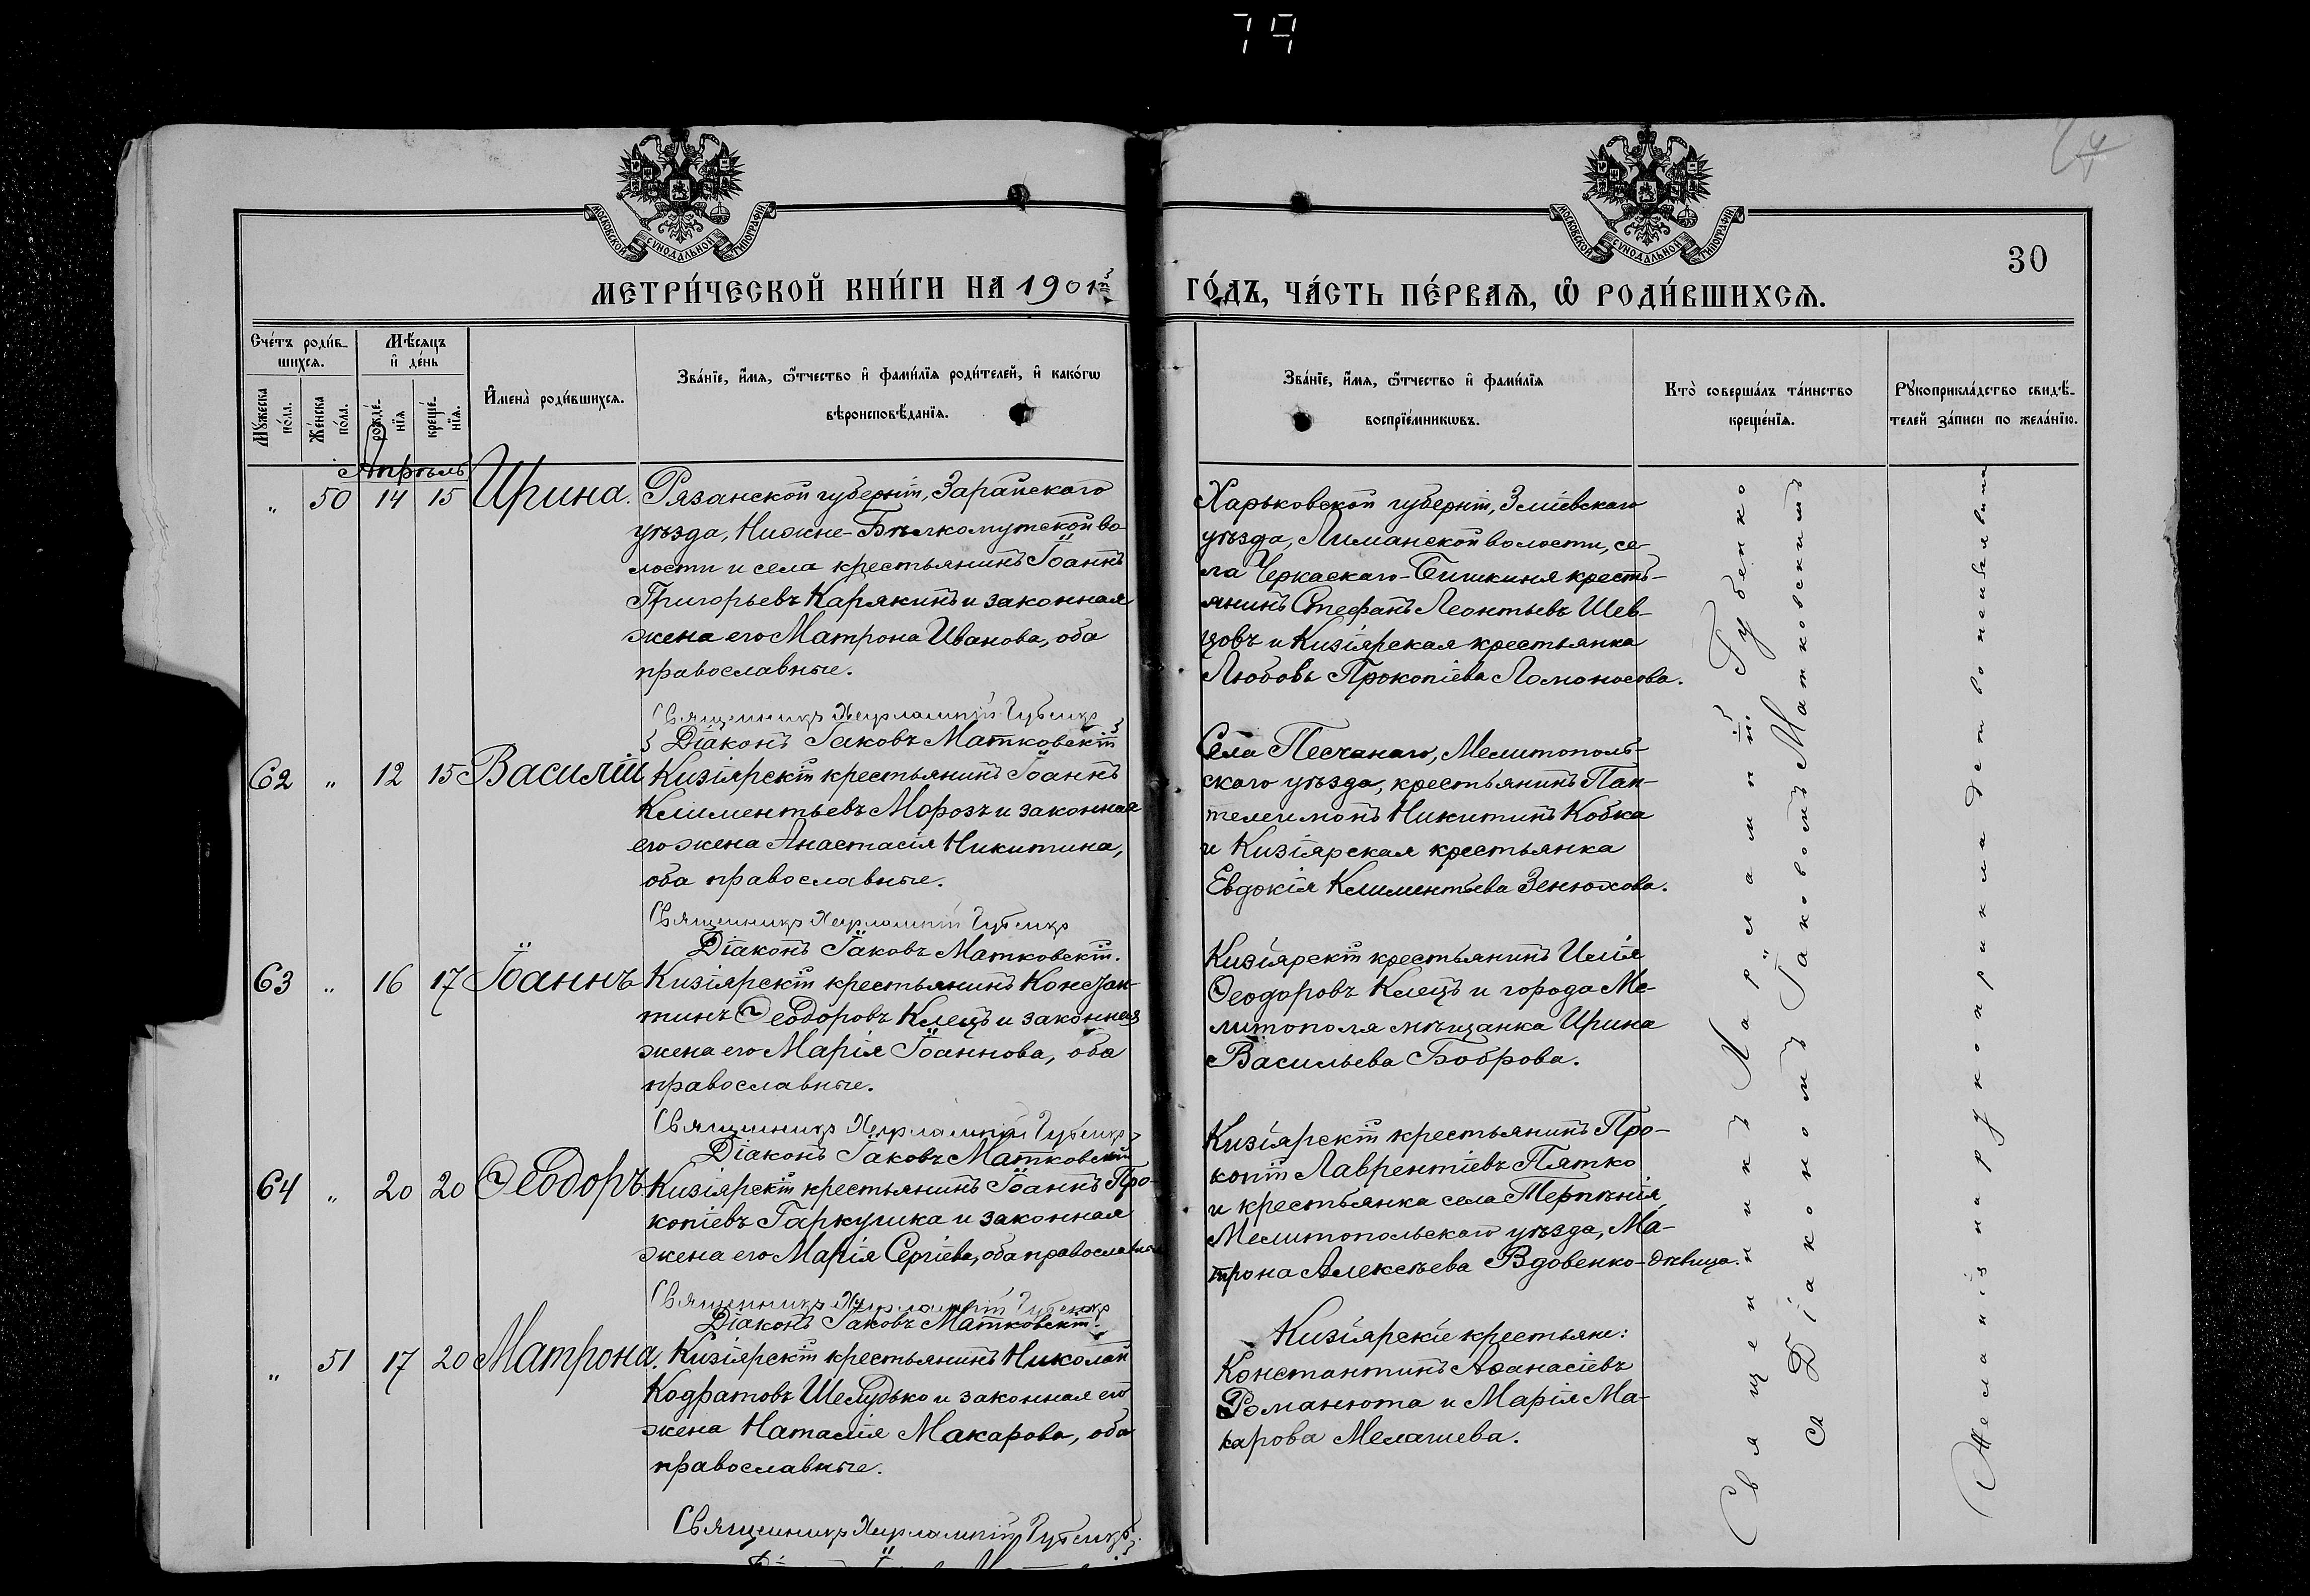 79
МОСКОВСКОЙ СУНОДАЛЬНОЙ ТИПОГРАФІИ
МОСКОВСКОЙ СУНОДАЛЬНОЙ ТИПОГРАФІИ
30
МЕТРИ́ЧЕСКОЙ КНИ́ГИ НА 1901й
ГО́ДЪ, ЧА́СТЬ ПЕ́РВАѦ, Ѡ҆ РОДИ́ВШИХСѦ.
Сче́тъ роди́в-
шихсѧ.
Мꙋ́жеска по́ла.
Же́нска по́ла.
Мѣ́сѧцъ
и҆ де́нь
рожде́-
нїѧ
креще́-
нїѧ.
И҆мена̀ роди́вшихсѧ.
Зва́нїе, и҆́мѧ, ѻ҆́тчество и҆ фами́лїѧ роди́телей, и҆ како́гѡ
вѣроисповѣ́данїѧ.
Зва́нїе, и҆́мѧ, ѻ҆́тчество и҆ фами́лїѧ
воспрїе́мникѡвъ.
Кто̀ соверша́лъ та́инство
креще́нїѧ.
Рꙋкоприкла́дство свидѣ́-
телей за́писи по жела́нїю.
Апрѣль
„ 50 14 15 Ирина.
Рязанской губерніи, Зарайскаго
уѣзда, Нижне-Бѣлкомутской во-
лости и села крестьянинъ Іоаннъ
Григорьевъ Карякинъ и законная
жена его Матрона Иванова, оба
православные.
Священникъ Харлампій Губенко
Діаконъ Іаковъ Матковскій
Харьковской губерніи, Зміевскаго
уѣзда, Лиманской волости, се-
ла Черкаскаго-Бишкиня кресть-
янинъ Стефанъ Леонтьевъ Шев-
цовъ и Кизіярская крестьянка
Любовь Прокопіева Ломоносова.
62 „ 12 15 Василій
Кизіярскій крестьянинъ Іоаннъ
Климентьевъ Морозъ и законная
его жена Анастасія Никитина,
оба православные.
Священникъ Харлампій Губенко
Діаконъ Іаковъ Матковскій.
Села Песчанаго, Мелитополь-
скаго уѣзда, крестьянинъ Пан-
телеимонъ Никитинъ Кобка
и Кизіярская крестьянка
Евдокія Климентьева Зенюхова.
63 „ 16 17 Іоаннъ
Кизіярскій крестьянинъ Констан-
тинъ Ѳеодоровъ Клецъ и законная
жена его Марія Іоаннова, оба
православные.
Священникъ Харлампій Губенко
Діаконъ Іаковъ Матковскій
Кизіярскій крестьянинъ Илія
Ѳеодоровъ Клецъ и города Ме-
литополя мѣщанка Ирина
Васильева Боброва.
64 „ 20 20 Ѳеодоръ
Кизіярскій крестьянинъ Іоаннъ Про-
копіевъ Гаркушка и законная
жена его Марія Сергіева, оба православные
Священникъ Харлампій Губенко
Діаконъ Іаковъ Матковскій.
Кизіярскій крестьянинъ Про-
копій Лаврентіевъ Пятко
и крестьянка села Терпѣнія
Мелитопольскаго уѣзда, Ма-
трона Алексѣева Вдовенко-дѣвица.
„ 51 17 20 Матрона.
Кизіярскій крестьянинъ Николай
Кодратовъ Шелудько и законная его
жена Наталія Макарова, оба
православные.
Священникъ Харлампій Губенко
Кизіярскіе крестьяне:
Константинъ Аѳанасіевъ
Романюта и Марія Ма-
карова Мелашева.
Священникъ Харлампій Губенко
съ Діакономъ Іаковомъ Матковскимъ
Желанія на рукоприкладство не изъявили